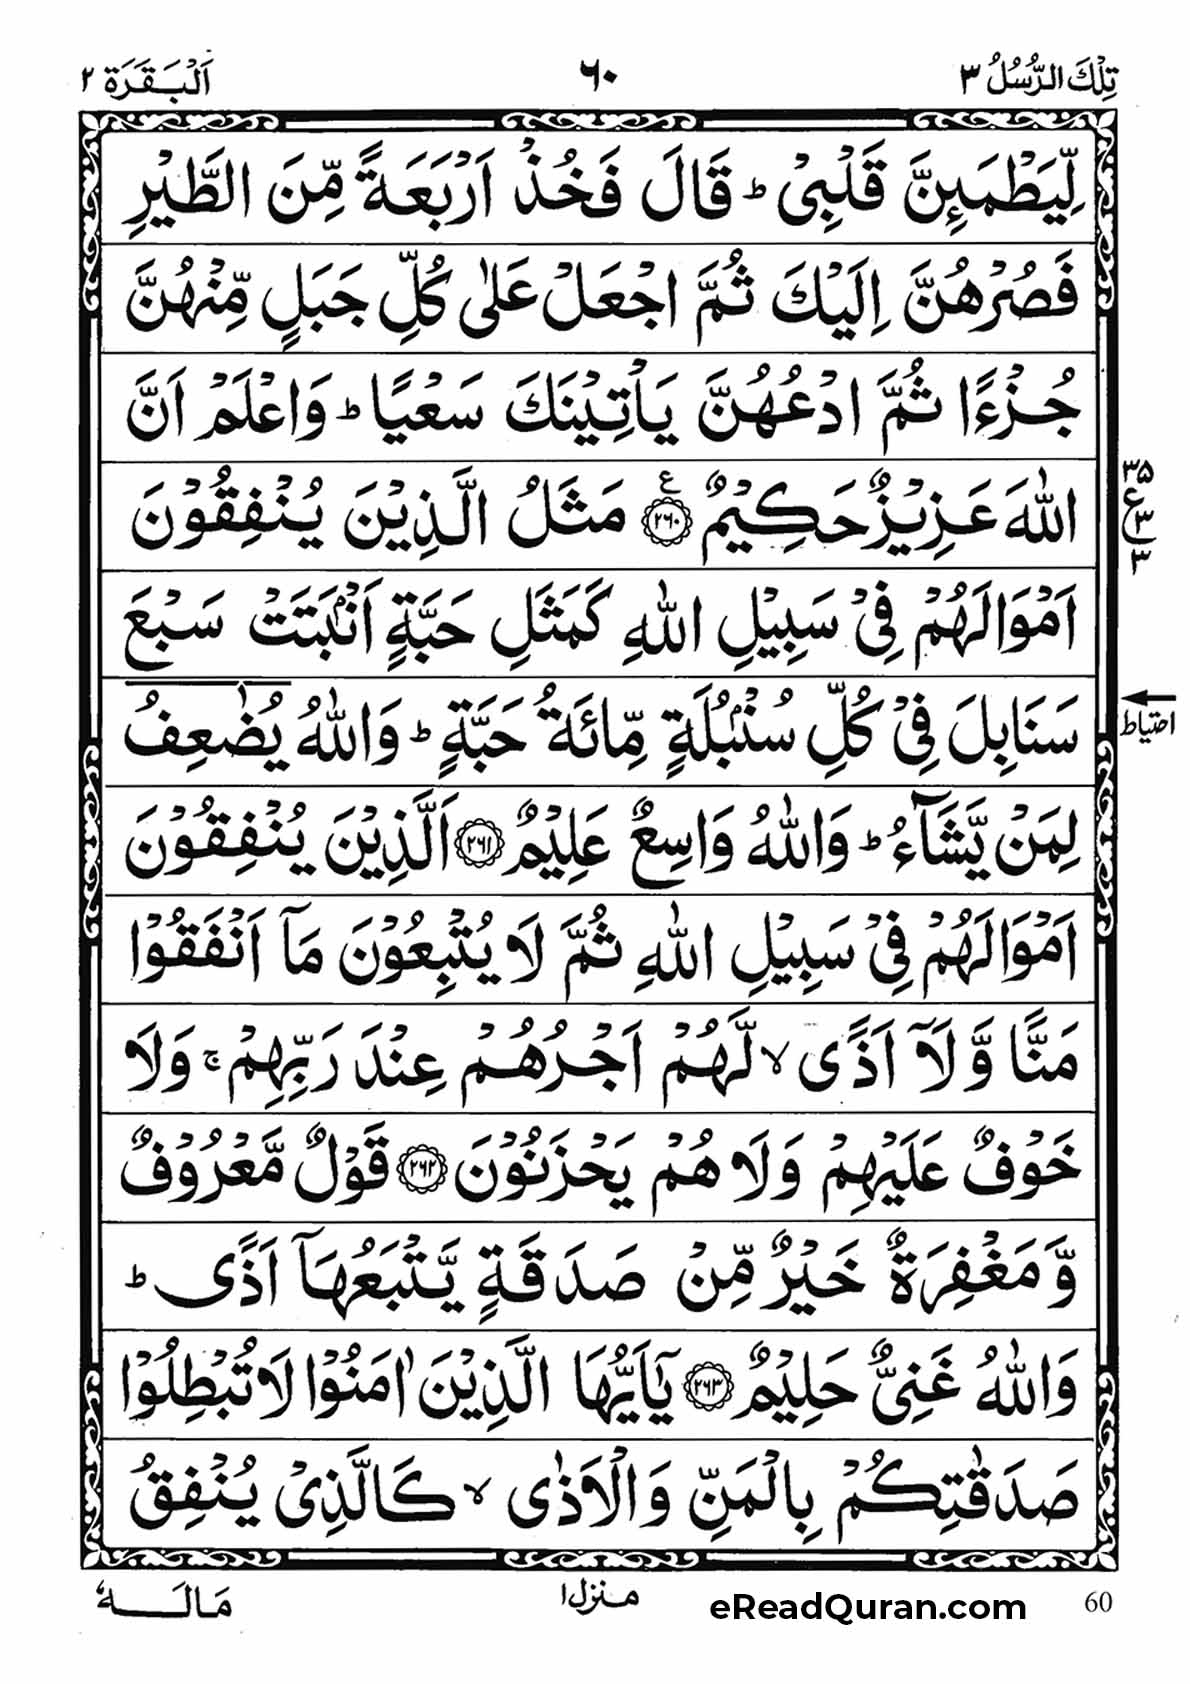 تِلْكَ الرُّسُلُ ٣
٦٠
اَلْبَقَرَة ٢
لِّيَطْمَىِٕنَّ قَلْبِیْ ؕ قَالَ فَخُذْ اَرْبَعَةً مِّنَ الطَّیْرِ
فَصُرْهُنَّ اِلَیْكَ ثُمَّ اجْعَلْ عَلٰى كُلِّ جَبَلٍ مِّنْهُنَّ
جُزْءًا ثُمَّ ادْعُهُنَّ یَاْتِیْنَكَ سَعْیًا ؕ وَاعْلَمْ اَنَّ
اللّٰهَ عَزِیْزٌ حَكِیْمٌ ﴿۲۶۰﴾ ع مَثَلُ الَّذِیْنَ یُنْفِقُوْنَ
٣٥
ع
٣
٣
اَمْوَالَهُمْ فِیْ سَبِیْلِ اللّٰهِ كَمَثَلِ حَبَّةٍ اَنْۢبَتَتْ سَبْعَ
سَنَابِلَ فِیْ كُلِّ سُنْۢبُلَةٍ مِّائَةُ حَبَّةٍ ؕ وَاللّٰهُ یُضٰعِفُ
احتیاط
لِمَنْ یَّشَآءُ ؕ وَاللّٰهُ وَاسِعٌ عَلِیْمٌ ﴿۲۶۱﴾ اَلَّذِیْنَ یُنْفِقُوْنَ
اَمْوَالَهُمْ فِیْ سَبِیْلِ اللّٰهِ ثُمَّ لَا یُتْبِعُوْنَ مَاۤ اَنْفَقُوْا
مَنًّا وَّلَاۤ اَذًى ۙ لَّهُمْ اَجْرُهُمْ عِنْدَ رَبِّهِمْ ۚ وَلَا
خَوْفٌ عَلَیْهِمْ وَلَا هُمْ یَحْزَنُوْنَ ﴿۲۶۲﴾ قَوْلٌ مَّعْرُوْفٌ
وَّمَغْفِرَةٌ خَیْرٌ مِّنْ صَدَقَةٍ یَّتْبَعُهَاۤ اَذًى ؕ
وَاللّٰهُ غَنِیٌّ حَلِیْمٌ ﴿۲۶۳﴾ یٰۤاَیُّهَا الَّذِیْنَ اٰمَنُوْا لَا تُبْطِلُوْا
صَدَقٰتِكُمْ بِالْمَنِّ وَالْاَذٰى ۙ كَالَّذِیْ یُنْفِقُ
مَالَهٗ
منزل ١
eReadQuran.com
60